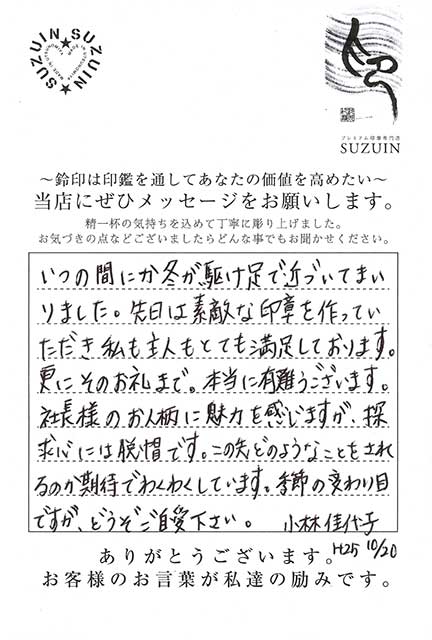 SUZUIN★SUZUIN★
プレミアム印章専門店
SUZUIN
～鈴印は印鑑を通してあなたの価値を高めたい～
当店にぜひメッセージをお願いします。
精一杯の気持ちを込めて丁寧に彫り上げました。
お気づきの点などございましたらどんな事でもお聞かせください。
いつの間にか冬が駆け足で近づいてまい
りました。先日は素敵な印章を作ってい
ただき私も主人もとても満足しております。
更にそのお礼まで。本当に有難うございます。
社長様のお人柄に魅力を感じますが、探
求心には脱帽です。この先どのようなことをされ
るのか期待でわくわくしています。季節の変わり目
ですが、どうぞご自愛下さい。 小林佳代子
H25 10/20
ありがとうございます。
お客様のお言葉が私達の励みです。